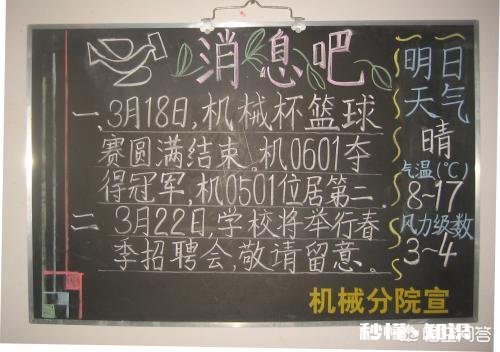 消息吧
一、3月18日,机械杯篮球
赛圆满结束。机0601夺
得冠军,机0501位居第二.
二 3月22日,学校将举行春
季招聘会,敬请留意。
机械分院宣
明日
天气
晴
气温(℃)
8~17
风力级数
3~4
秒懂·知识